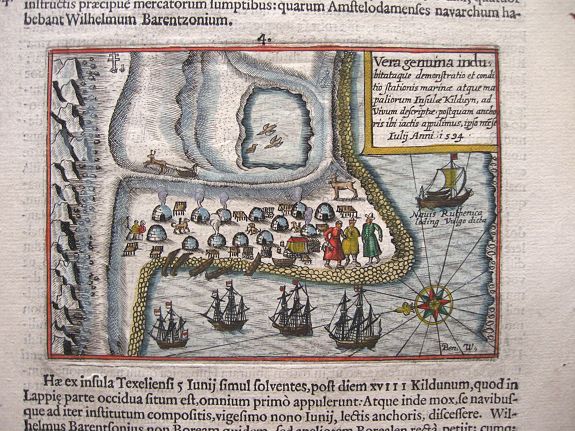 instructis præcipuè mercatorum sumptibus: quarum Amstelodamenses navarchum ha-
bebant Wilhelmum Barentzonium.
4.
Vera genuina indu
bitataque demonstratio et condi
tio stationis marinæ atque ma
paliorum Insulæ Kilduyn, ad
Vivum descriptæ, postquam ancho
ris ibi iactis appulimus, ipso mense
Iulij Anni 1594.
Nauis Ruthenica
lading Vulgo dicta
Ben. W.
Hæ ex insula Texeliensi 5 Iunij simul solventes, post diem XVIII Kildunum, quod in
Lappiæ parte occidua situm est, omnium primò appulerunt. Atque inde mox, se navibus-
que ad iter institutum compositis, vigesimo nono Iunij, lectis anchoris, discessere. Wil-
helmus Barentsonius non Boream quidem, sed